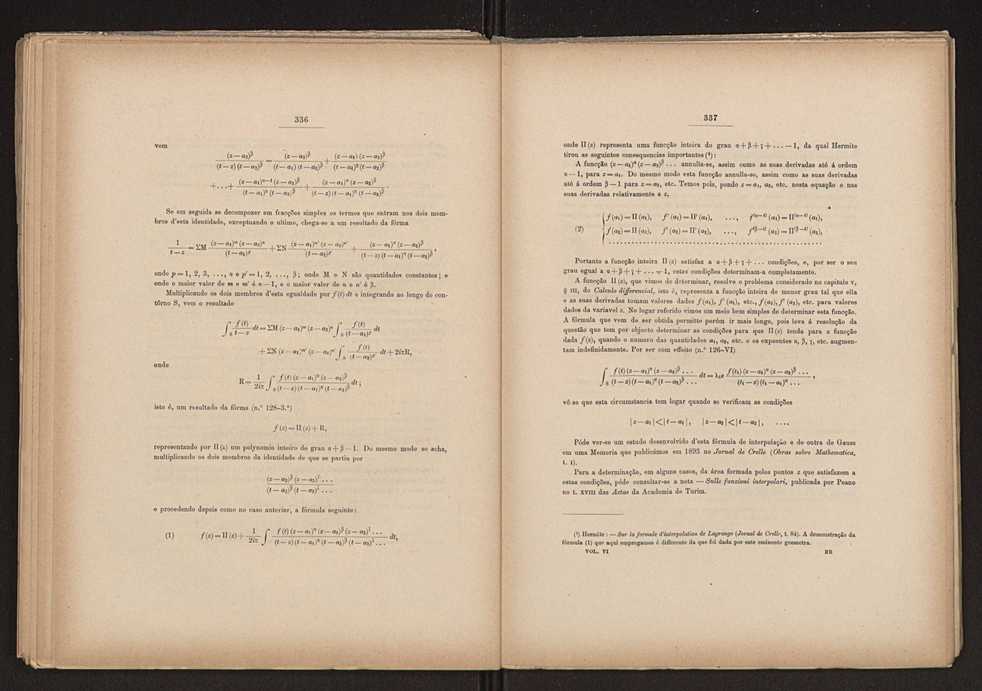 336
vem
(z — a₂)^β / (t — z)(t — a₂)^β = (z — a₂)^β / (t — a₁)(t — a₂)^β + (z — a₁)(z — a₂)^β / (t — a₁)²(t — a₂)^β
+ . . . + (z — a₁)^{α−1}(z — a₂)^β / (t — a₁)^α(t — a₂)^β + (z — a₁)^α(z — a₂)^β / (t — z)(t — a₁)^α(t — a₂)^β
Se em seguida se decompozer em fracções simples os termos que entram nos dois mem-
bros d'esta identidade, exceptuando o ultimo, chega-se a um resultado da fórma
1 / t — z = ΣM (z — a₁)^m (z — a₂)^n / (t — a₁)^p + ΣN (z — a₁)^{m'} (z — a₂)^{n'} / (t — a₂)^{p'} + (z — a₁)^α (z — a₂)^β / (t — z)(t — a₁)^α (t — a₂)^β,
onde p = 1, 2, 3, . . ., α e p' = 1, 2, . . ., β; onde M e N são quantidades constantes; e
onde o maior valor de m e m' é α — 1, e o maior valor de n e n' é β.
Multiplicando os dois membros d'esta egualdade por f(t) dt e integrando ao longo do con-
tôrno S, vem o resultado
∫ₛ f(t) / t — z dt = ΣM (z — a₁)^m (z — a₂)^n ∫ₛ f(t) / (t — a₁)^p dt
+ ΣN (z — a₁)^{m'} (z — a₂)^{n'} ∫ₛ f(t) / (t — a₂)^{p'} dt + 2iπR,
onde
R = 1 / 2iπ ∫ₛ f(t)(z — a₁)^α (z — a₂)^β / (t — z)(t — a₁)^α (t — a₂)^β dt;
isto é, um resultado da fórma (n.º 128–3.º)
f(z) = Π(z) + R,
representando por Π(z) um polynomio inteiro do grau α + β — 1. Do mesmo modo se acha,
multiplicando os dois membros da identidade de que se partiu por
(z — a₂)^β (z — a₃)^γ . . . / (t — a₂)^β (t — a₃)^γ . . .
e procedendo depois como no caso anterior, a fórmula seguinte:
(1) f(z) = Π(z) + 1 / 2iπ ∫ f(t)(z — a₁)^α (z — a₂)^β (z — a₃)^γ . . . / (t — z)(t — a₁)^α (t — a₂)^β (t — a₃)^γ . . . dt,
337
onde Π(z) representa uma funcção inteira do grau α + β + γ + . . . — 1, da qual Hermite
tirou as seguintes consequencias importantes (¹):
A funcção (z — a₁)^α (z — a₂)^β . . . annulla-se, assim como as suas derivadas até á ordem
α — 1, para z = a₁. Do mesmo modo esta funcção annulla-se, assim como as suas derivadas
até á ordem β — 1 para z = a₂, etc. Temos pois, pondo z = a₁, a₂, etc. nesta equação e nas
suas derivadas relativamente a z,
f(a₁) = Π(a₁), f'(a₁) = Π'(a₁), . . ., f^{(α−1)}(a₁) = Π^{(α−1)}(a₁),
(2) f(a₂) = Π(a₂), f'(a₂) = Π'(a₂), . . ., f^{(β−1)}(a₂) = Π^{(β−1)}(a₂),
. . . . . . . . . . . . . . . . . . . . . . . . . . . . . .
Portanto a funcção inteira Π(z) satisfaz a α + β + γ + . . . condições, e, por ser o seu
grau egual a α + β + γ + . . . — 1, estas condições determinam-a completamente.
A funcção Π(z), que vimos de determinar, resolve o problema considerado no capitulo V,
§ III, do Calculo differencial, isto é, representa a funcção inteira de menor grau tal que ella
e as suas derivadas tomam valores dados f(a₁), f'(a₁), etc., f(a₂), f'(a₂), etc. para valores
dados da variavel z. No logar referido vimos um meio bem simples de determinar esta funcção.
A fórmula que vem de ser obtida permitte porém ir mais longe, pois leva á resolução da
questão que tem por objecto determinar as condições para que Π(z) tenda para a funcção
dada f(z), quando o numero das quantidades a₁, a₂, etc. e os expoentes α, β, γ, etc. augmen-
tam indefinidamente. Por ser com effeito (n.º 126–VI)
∫ₛ f(t)(z — a₁)^α (z — a₂)^β . . . / (t — z)(t — a₁)^α (t — a₂)^β . . . dt = λσ f(t₁)(z — a₁)^α (z — a₂)^β . . . / (t₁ — z)(t₁ — a₁)^α . . . ,
vê-se que esta circumstancia tem logar quando se verificam as condições
|z — a₁| < |t — a₁|, |z — a₂| < |t — a₂|, . . . .
Póde ver-se um estudo desenvolvido d'esta fórmula de interpolação e de outra de Gauss
em uma Memoria que publicámos em 1893 no Jornal de Crelle (Obras sobre Mathematica,
t. I).
Para a determinação, em alguns casos, da área formada pelos pontos z que satisfazem a
estas condições, póde consultar-se a nota — Sulle funzioni interpolari, publicada por Peano
no t. XVIII das Actas da Academia de Turim.
(¹) Hermite: — Sur la formule d'interpolation de Lagrange (Jornal de Crelle, t. 84). A demonstração da
fórmula (1) que aqui empregamos é differente da que foi dada por este eminente geometra.
VOL. VI RR